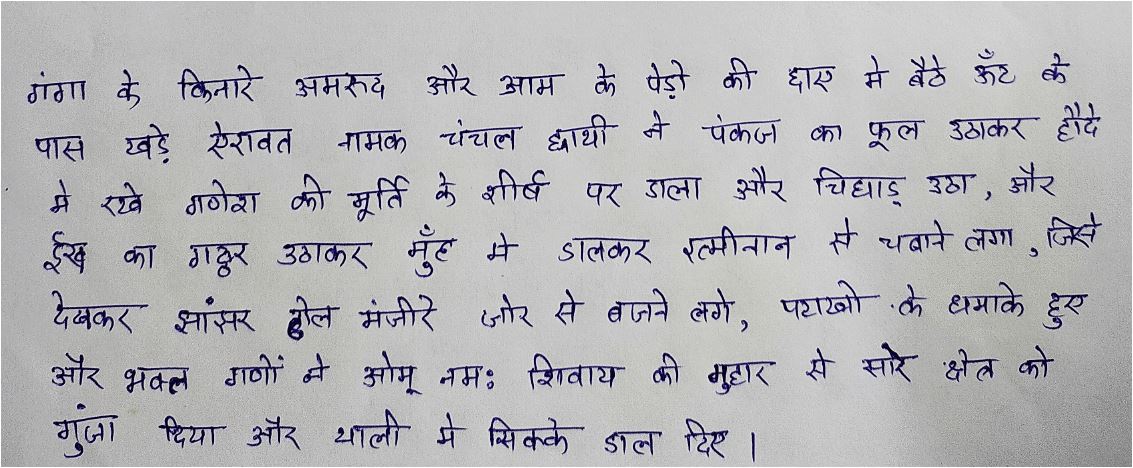 गंगा के किनारे अमरुद और आम के पेड़ो की छाए मे बैठे ऊँट के
पास खड़े ऐरावत नामक चंचल हाथी ने पंकज का फूल उठाकर हौदे
मे रखे गणेश की मूर्ति के शीर्ष पर डाला और चिघाड़ उठा, और
ईख का गट्ठर उठाकर मुँह मे डालकर इत्मीनान से चबाने लगा, जिसे
देखकर झांझर ढोल मंजीरे जोर से बजने लगे, पटाखो के धमाके हुए
और भक्त गणों ने ओम् नमः शिवाय की गुहार से सारे क्षेत्र को
गुंजा दिया और थाली मे सिक्के डाल दिए।